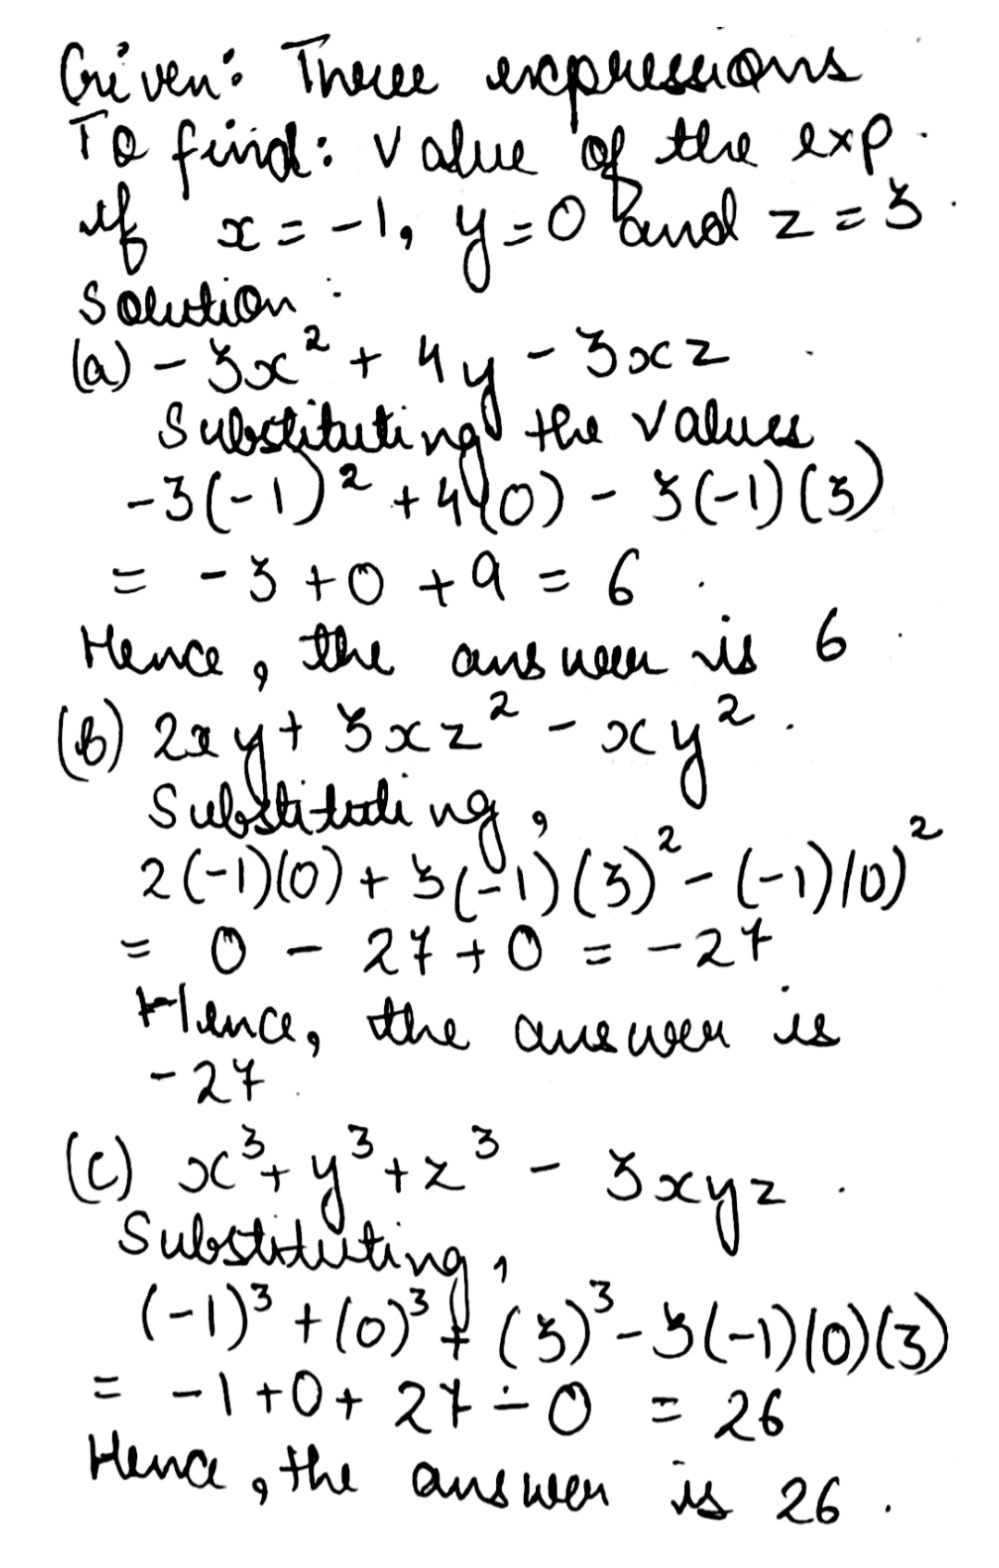 Given: Three expressions
To find: Value of the exp.
if x = -1, y = 0 and z = 3.
Solution:
(a) - 3x² + 4y - 3xz
Substituting the values
-3(-1)² + 4(0) - 3(-1)(3)
= -3 + 0 + 9 = 6.
Hence, the answer is 6
(b) 2xy + 3xz² - xy².
Substituting,
2(-1)(0) + 3(-1)(3)² - (-1)(0)²
= 0 - 27 + 0 = -27
Hence, the answer is
-27.
(c) x³ + y³ + z³ - 3xyz.
Substituting,
(-1)³ + (0)³ + (3)³ - 3(-1)(0)(3)
= -1 + 0 + 27 - 0 = 26
Hence, the answer is 26.